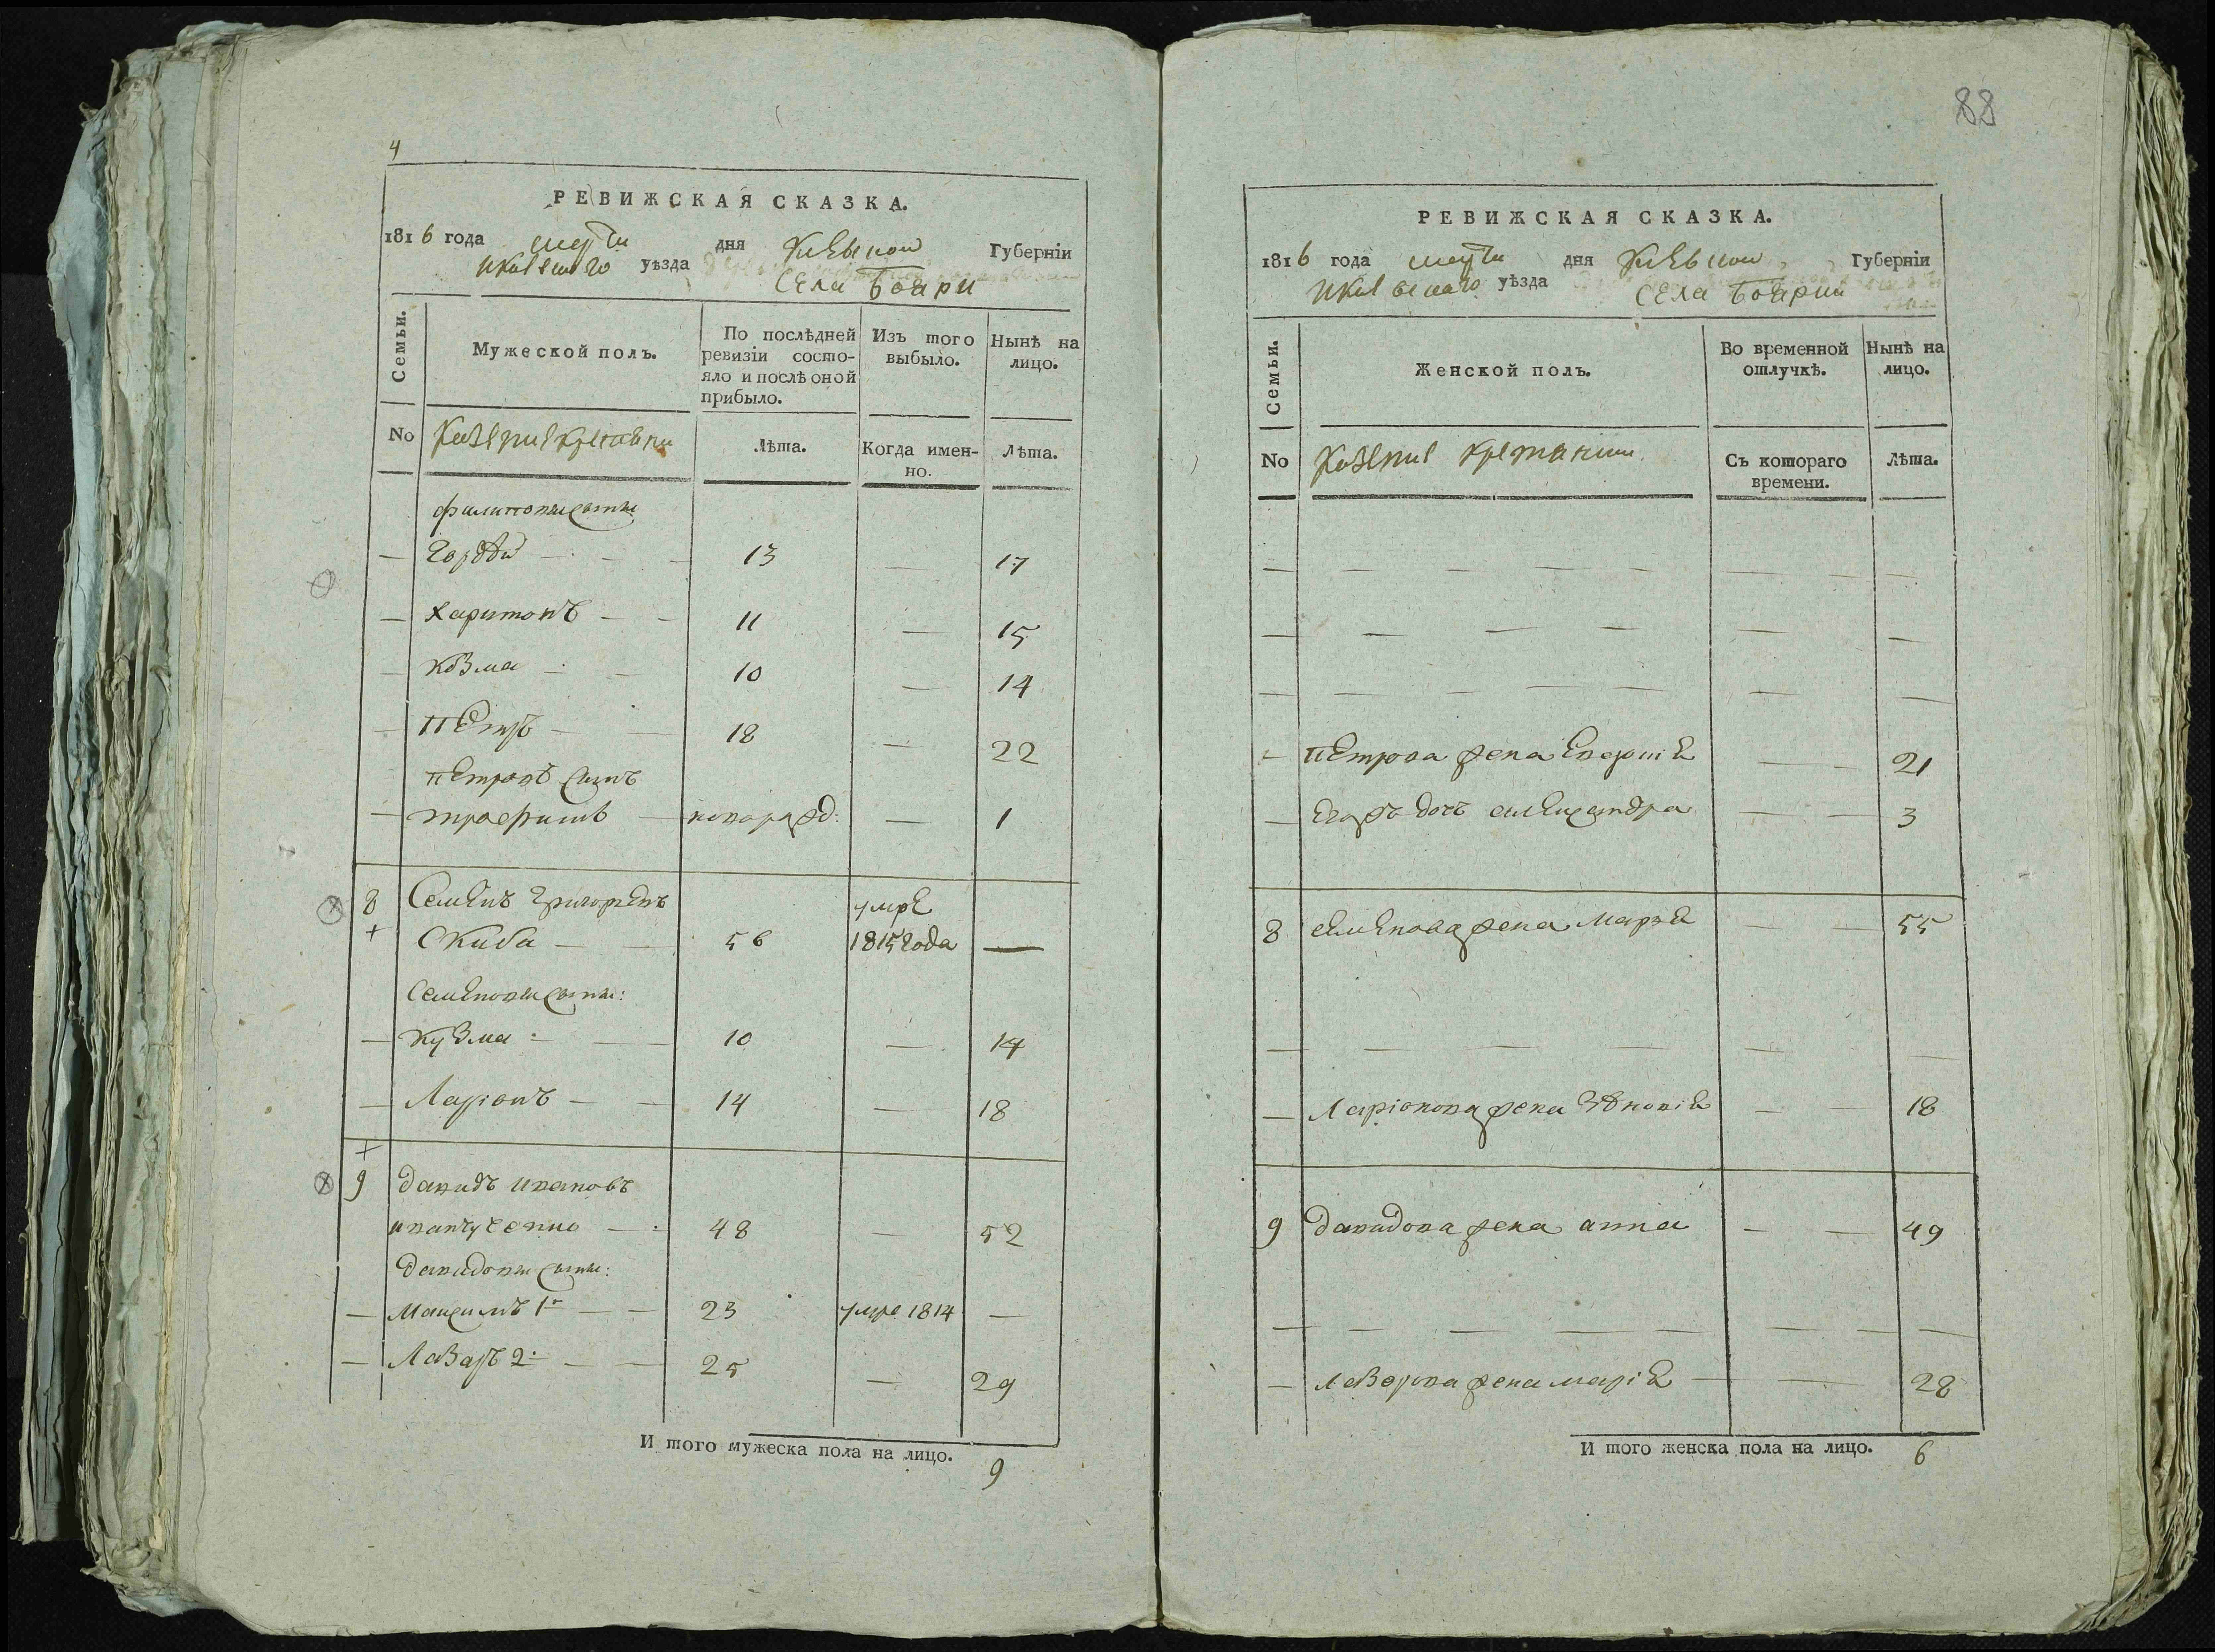 4
РЕВИЖСКАЯ СКАЗКА.
1816 года марта дня Киевской Губерніи
Киевского уѣзда
Села Бояри
Семьи.
Мужеской полъ.
По послѣдней ревизіи состояло и послѣ оной прибыло.
Изъ того выбыло.
Нынѣ на лицо.
No
Казенние крестьяни
Лѣта.
Когда именно.
Лѣта.
филиповы сыны
Гордѣй — 13 — 17
Харитонъ — 11 — 15
Козма — 10 — 14
Петръ — 18 — 22
Петровъ сынъ
трофимъ — новорожд: — 1
8 Семенъ Григорьевъ умре
Скиба — 56 1815 года —
Семеновы сыны:
Кузма — 10 — 14
Ларіонъ — 14 — 18
9 Давидъ Ивановъ
48 — 52
Давидовы сыны:
Максимъ 1й — 23 умре 1814 —
Лазарь 2й — 25 — 29
И того мужеска пола на лицо. 9
88
РЕВИЖСКАЯ СКАЗКА.
1816 года марта дня Киевской Губерніи
Киевскаго уѣзда
Села Боярки
Семьи.
Женской полъ.
Во временной отлучкѣ.
Нынѣ на лицо.
No
Казенние крестьянки
Съ котораго времени.
Лѣта.
Петрова жена — 21
Егожъ дочь александра — 3
8 Семенова жена Марья — 55
Ларіонова жена Зѣновія — 18
9 Давидова жена анна — 49
Лазарова жена марія — 28
И того женска пола на лицо. 6